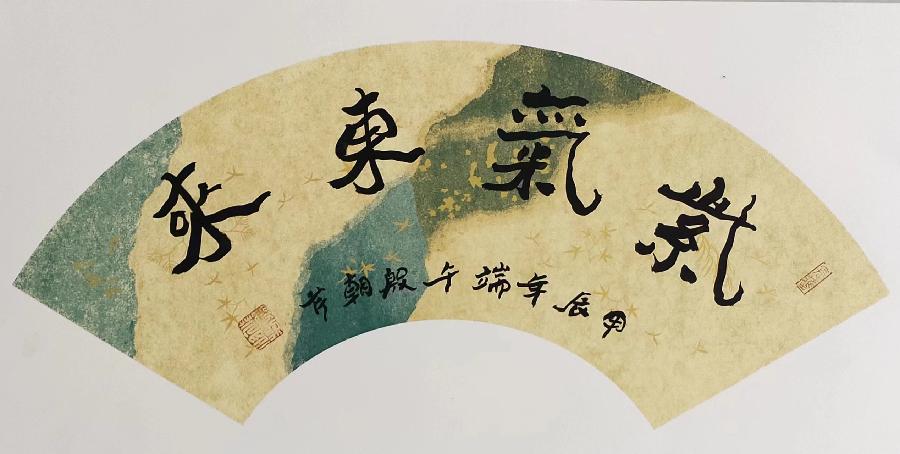 紫氣東來
甲辰年端午殷朝芹